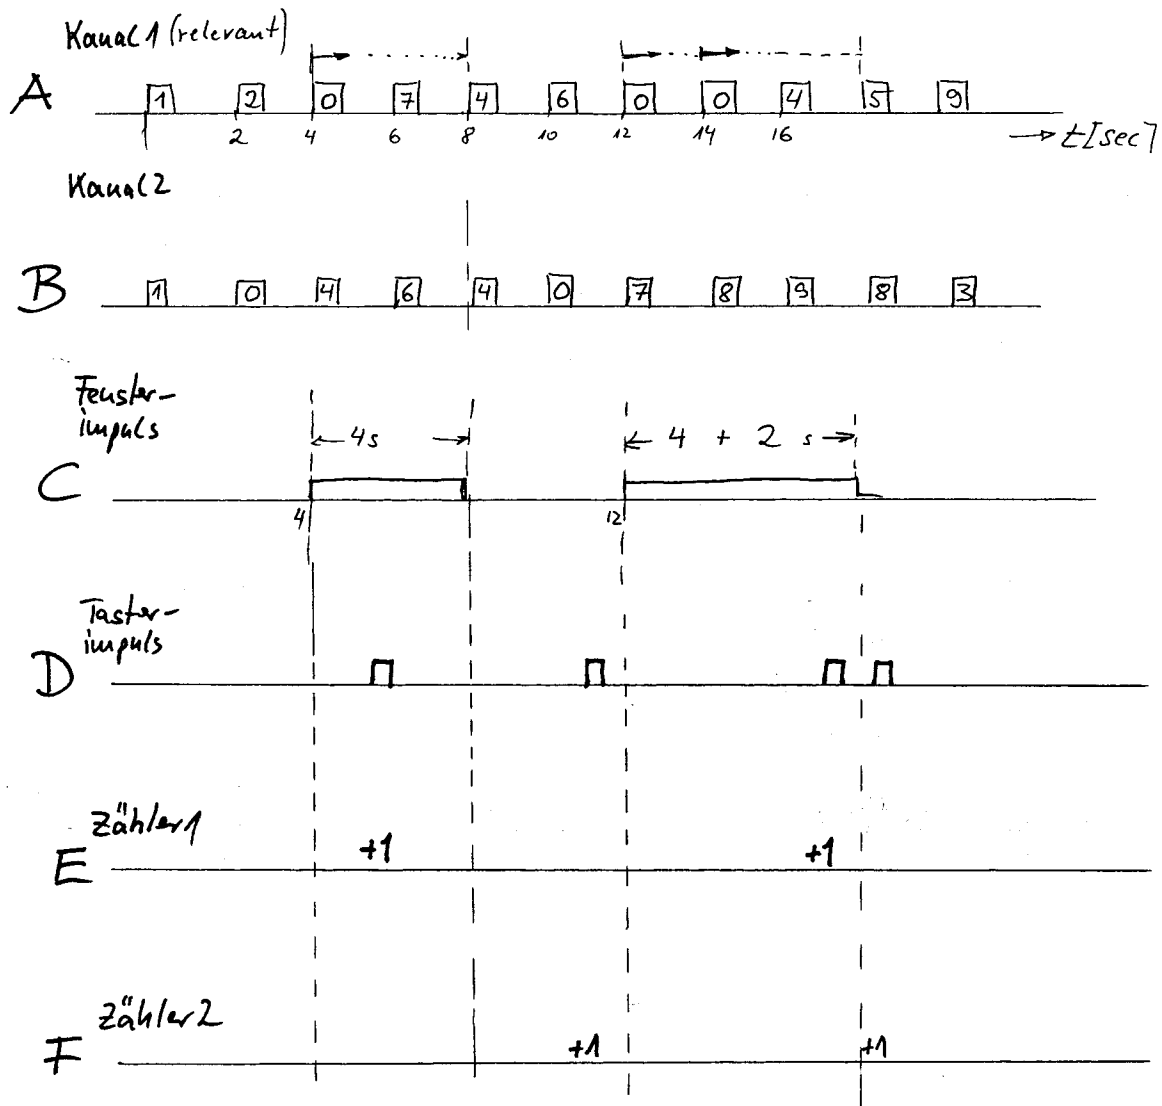 Kanal 1 (relevant)
A 1 2 0 7 4 6 0 0 4 5 9
2 4 6 8 10 12 14 16 → t[sec]
Kanal 2
B 1 0 4 6 4 0 7 8 9 8 3
Fenster-
impuls
← 4s → ← 4 + 2 s →
C
4 12
Taster-
impuls
D
Zähler 1
E +1 +1
Zähler 2
F +1 +1